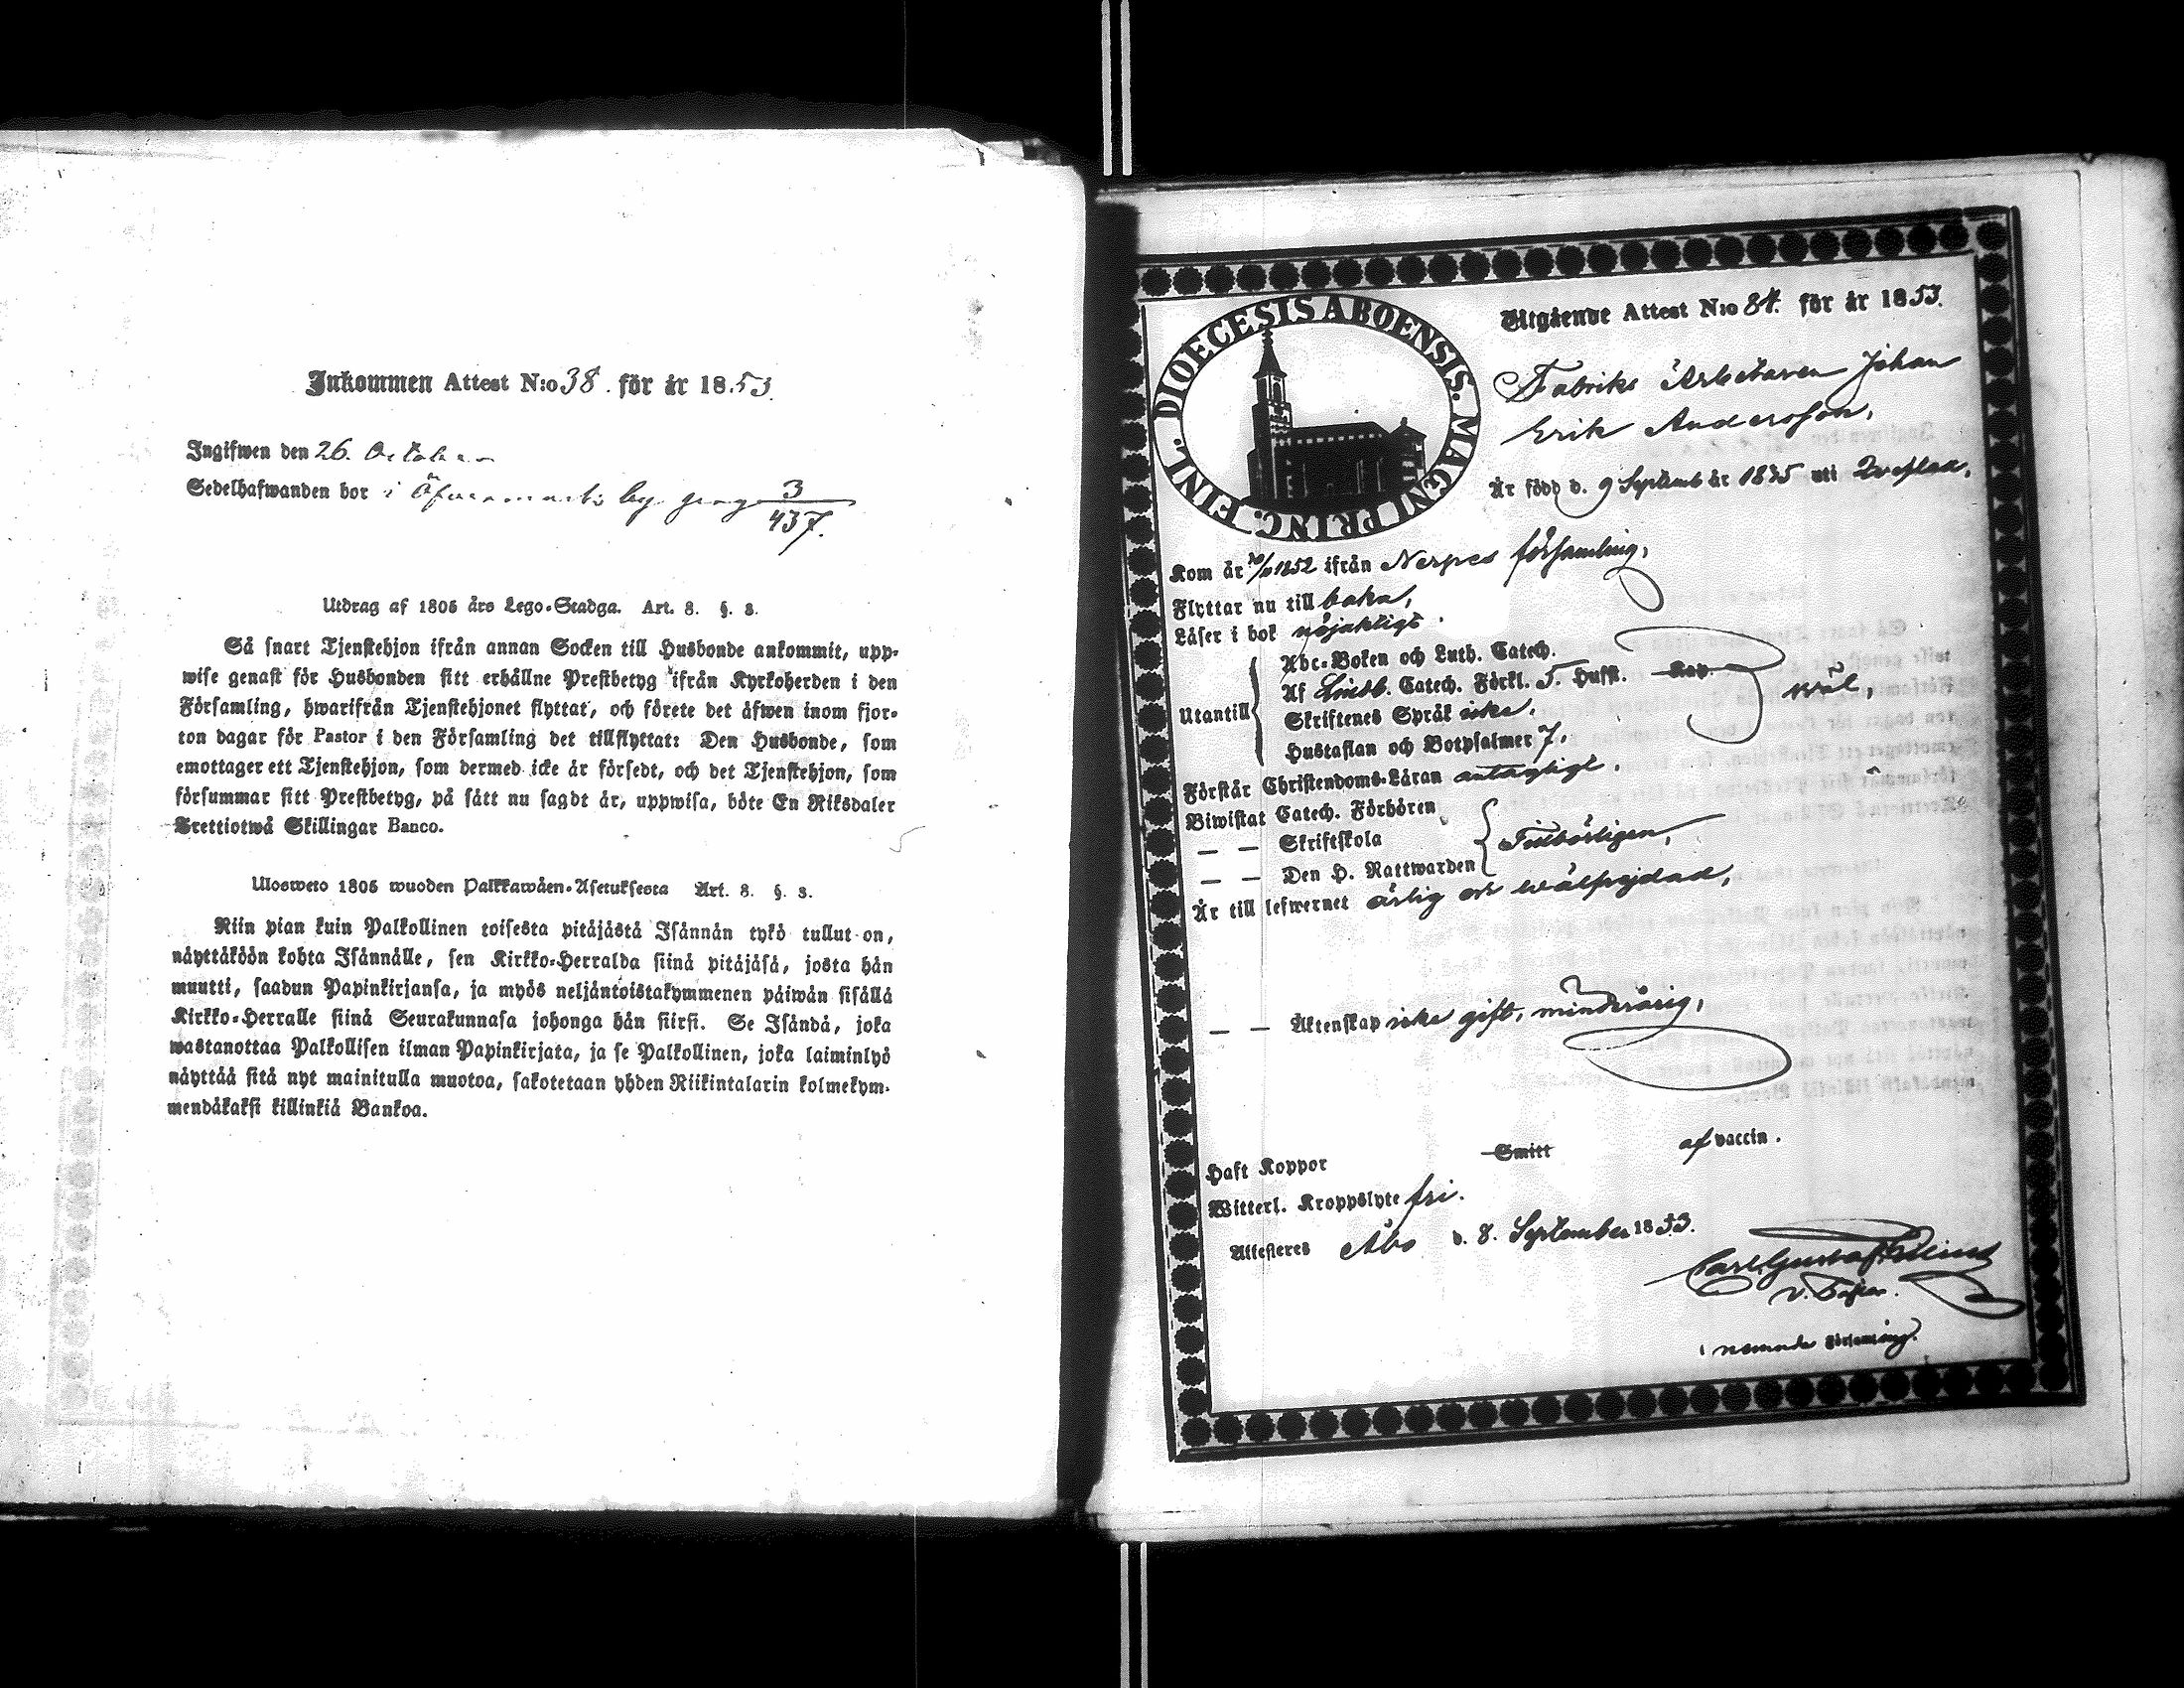 Inkommen Attest N:o 38. för år 1853.
Ingifwen den 26. October
Sedelhafwanden bor i Öfvermarks by pag 3/437.
Utdrag af 1805 års Lego-Stadga. Art. 8. §. 8.
Så snart Tjenstehjon ifrån annan Socken till Husbonde ankommit, upp-
wise genast för Husbonden sitt erhållne Prestbetyg ifrån Kyrkoherden i den
Församling, hwarifrån Tjenstehjonet flyttat, och förete det äfwen inom fjor-
ton dagar för Pastor i den Församling det tillflyttat: Den Husbonde, som
emottager ett Tjenstehjon, som dermed icke är försedt, och det Tjenstehjon, som
försummar sitt Prestbetyg, på sätt nu sagdt är, uppwisa, böte En Riksdaler
Trettiotwå Skillingar Banco.
Ulosweto 1805 wuoden Palkkawäen-Asetuksesta Art. 8. §. 8.
Niin pian kuin Palkollinen toisesta pitäjästä Isännän tykö tullut on,
näyttäköön kohta Isännälle, sen Kirkko-Herralda siinä pitäjäsä, josta hän
muutti, saadun Papinkirjansa, ja myös neljäntoistakymmenen päiwän sisällä
Kirkko-Herralle siinä Seurakunnasa johonga hän siirsi. Se Isändä, joka
wastanottaa Palkollisen ilman Papinkirjata, ja se Palkollinen, joka laiminlyö
näyttää sitä nyt mainitulla muotoa, sakotetaan yhden Riikintalarin kolmekym-
mendäkaksi killinkiä Bankoa.
DIOECESIS ABOENSIS. MAGNI PRINC. FINL.
Utgående Attest N:o 84. för år 1853.
Fabriks Arbetaren Johan
Erik Andersson,
Är född d. 9 Septemb år 1835 uti
Kom år 1852 ifrån Nerpes församling,
Flyttar nu till baka,
Läser i bok nöjaktigt.
Utantill
Abc-Boken och Luth. Catech.
Af Lindb. Catech. Förkl. 5. Hufst. Kap.
wäl,
Skriftenes Språk icke,
Hustaflan och Botpsalmer 7,
Förstår Christendoms-Läran antagligt.
Biwistat Catech. Förhören
— — Skriftskola
Tillbörligen,
— — Den H. Nattwarden
Är till lefwernet ärlig och wälfrejdad,
— — Äktenskap icke gift, minderårig,
Haft Koppor Smitt af vaccin.
Witterl. Kroppslyte fri.
Attesteres Åbo d. 8. September 1853.
Carl Gustaf
v. Pastor.
i nämnde Församling.